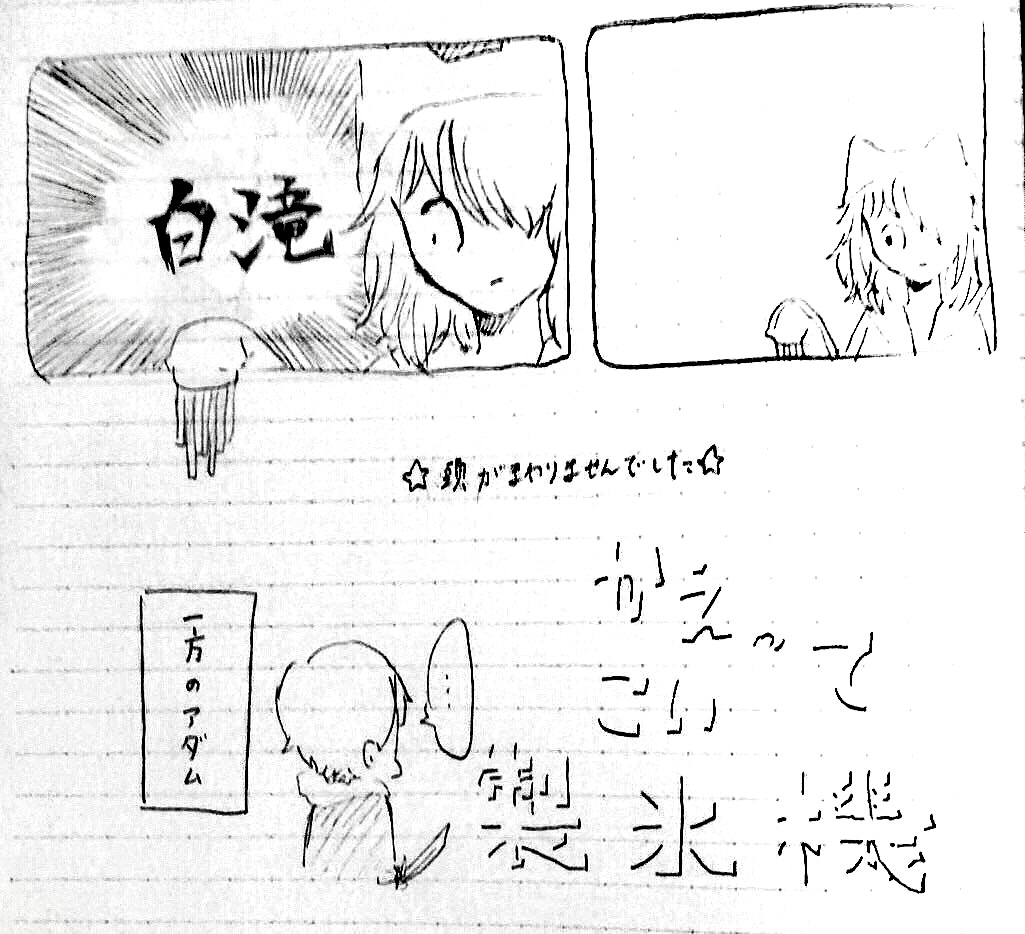 白滝
☆頭がまわりませんでした☆
かえって
こい
製氷機
…
一方のアダム